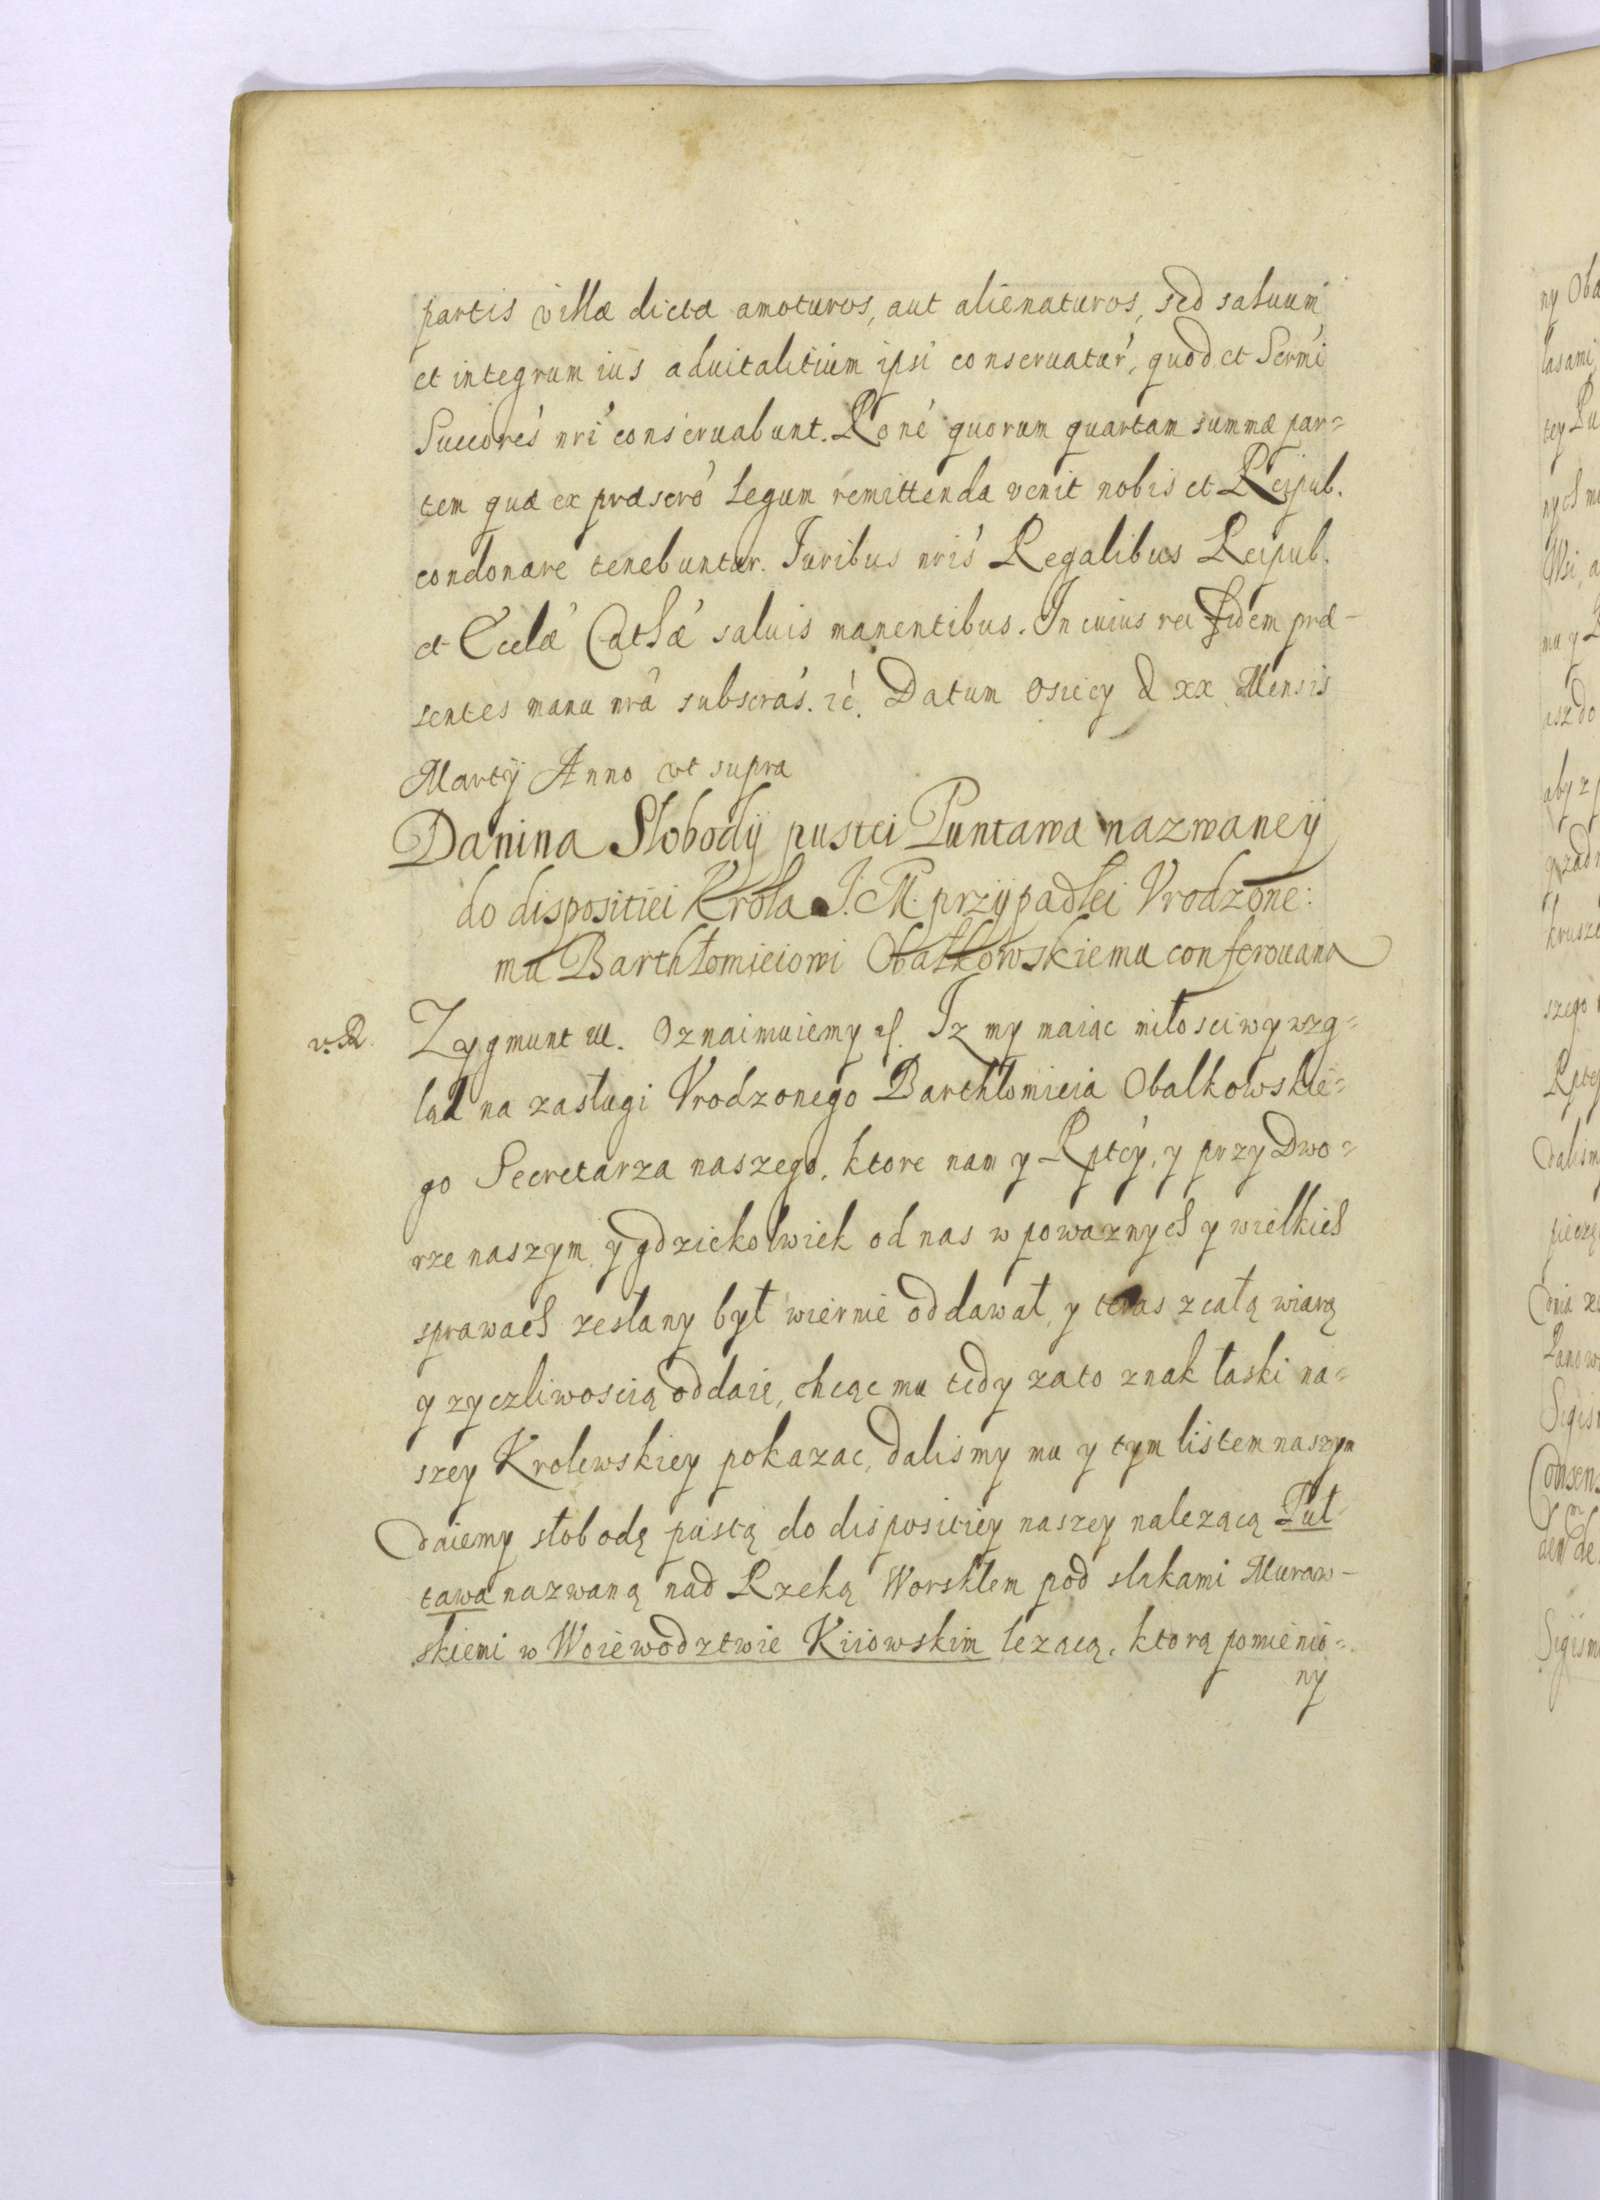 partis villæ dictæ amoturos, aut alienaturos, sed saluum
et integrum ius aduitalitium ipsi conseruatur, quod et Sermi
Succores nri conseruabunt. Rone quorum quartam summæ par=
tem quæ ex præscro legum remittenda venit nobis et Reipub.
condonare tenebuntur. Iuribus nris Regalibus Reipub.
et Ecclæ Cathæ saluis manentibus. In cuius rei fidem præ-
sentes manu nra subscras. Datum Osiecy d xx Mensis
Martij Anno vt supra
Danina Slobody pustei Puntawa nazwaney
do dispositiei Krola J. M. przypadłei Vrodzone:
mu Barthłomieiowi Obałkowskiemu conferowana
v. R.
Zygmunt III. Oznaimuiemy Iz my maiąc miłosciwy wzg=
ląd na zasługi Vrodzonego Barthłomieia Obalkowskie=
go Secretarza naszego, ktore nam y Rptey, y przy Dwo=
rze naszym y gdziekolwiek od nas w powaznych y wielkich
sprawach zesłany był wiernie oddawał, y teras z całą wiarą
y zyczliwoscią oddaie, chcąc mu tedy zato znak łaski na=
szey Krolewskiey pokazac, dalismy mu y tym listem naszym
daiemy słobodą pustą do dispositiey naszey nalezącą Puł
tawa nazwaną nad Rzeką Worsklem pod slakami Muraw-
skiemi w Woiewodztwie Kiiowskim lezącą, ktorą pomienio=
ny